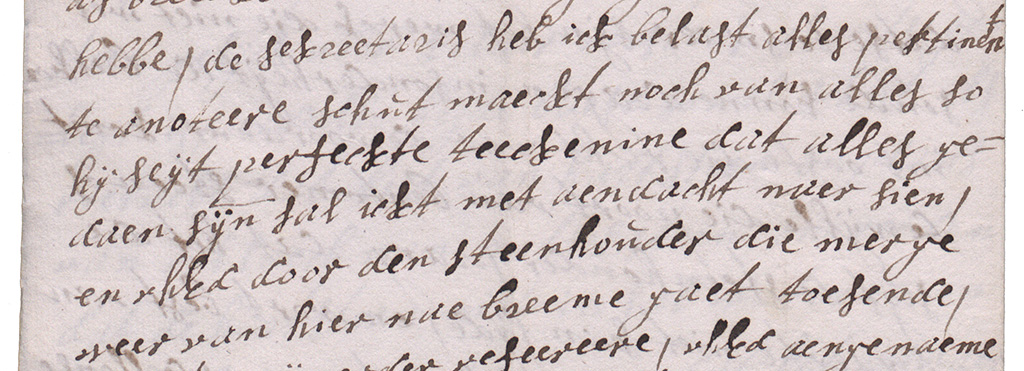 hebbe / de sekreetaris heb ick belast alles pertinent
te anoteere schut maeckt noch van alles so
hij seijt perfeckte teeckenine dat alles ge=
daen sijn sal ickt met aendacht naer sien /
en uhEd door den steenhouder die merge
weer van hier nae breeme gaet toesende /
refeereere / uhEd aengenaeme